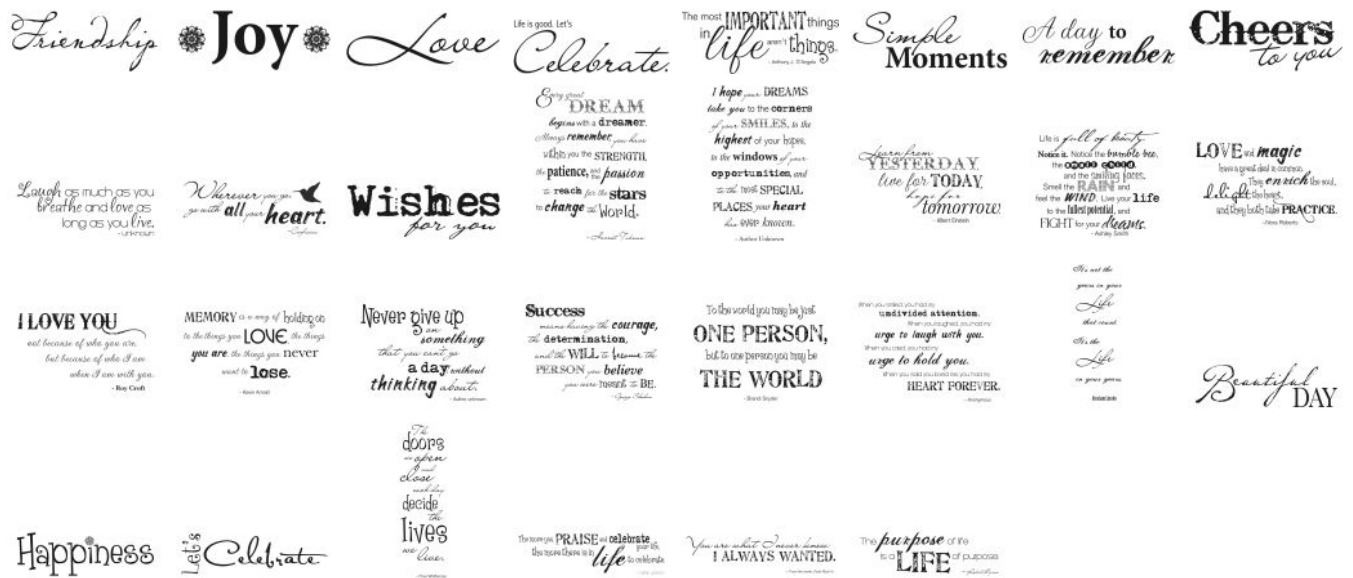 Friendship
Joy
Love
Life is good. Let's
Celebrate.
The most IMPORTANT things
in life aren't things.
- Anthony J. D'Angelo
Simple
Moments
A day to
remember
Cheers
to you
Laugh as much as you
breathe and love as
long as you live.
- Unknown
Wherever you go,
go with all your heart.
- Confucius
Wishes
for you
Every great
DREAM
begins with a dreamer.
Always remember, you have
within you the STRENGTH,
the patience, and the passion
to reach for the stars
to change the World.
- Harriet Tubman
I hope your DREAMS
take you to the corners
of your SMILES, to the
highest of your hopes,
to the windows of your
opportunities, and
to the most SPECIAL
PLACES your heart
has ever known.
- Author Unknown
Learn from
YESTERDAY,
live for TODAY,
hope for
tomorrow.
- Albert Einstein
Life is full of beauty.
Notice it. Notice the bumble bee,
the small child,
and the smiling faces.
Smell the RAIN and
feel the WIND. Live your life
to the fullest potential, and
FIGHT for your dreams.
- Ashley Smith
LOVE and magic
have a great deal in common.
They enrich the soul,
delight the heart,
and they both take PRACTICE.
- Nora Roberts
I LOVE YOU
not because of who you are,
but because of who I am
when I am with you.
- Roy Croft
MEMORY is a way of holding on
to the things you LOVE, the things
you are, the things you never
want to lose.
- Kevin Arnold
Never give up
on something
that you can't go
a day without
thinking about.
- Author unknown
Success
means having the courage,
the determination,
and the WILL to become the
PERSON you believe
you were meant to BE.
- George Sheehan
To the world you may be just
ONE PERSON,
but to one person you may be
THE WORLD
- Brandi Snyder
When you smiled, you had my
undivided attention.
When you laughed, you had my
urge to laugh with you.
When you cried, you had my
urge to hold you.
When you said you loved me, you had my
HEART FOREVER.
- Anonymous
It's not the
years in your
Life
that count.
It's the
Life
in your years.
Beautiful
DAY
Happiness
Let's Celebrate
The
doors
we open
and
close
each day
decide
the
lives
we
live.
The more you PRAISE and celebrate your life,
the more there is in life to celebrate.
You are what I never knew
I ALWAYS WANTED.
The purpose of life
is a LIFE of purpose.